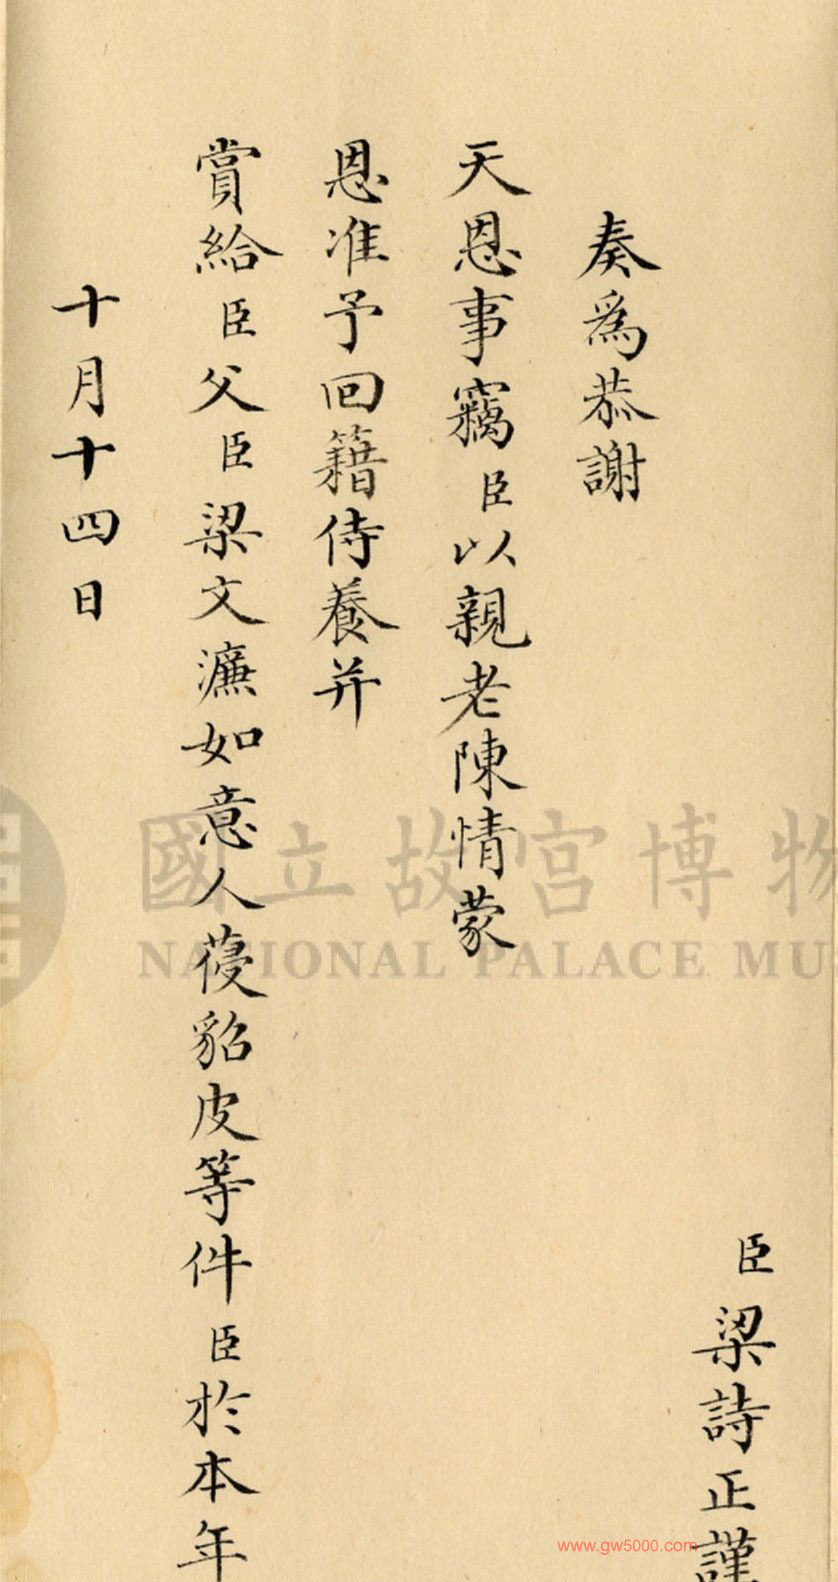 臣梁詩正謹
奏為恭謝
天恩事竊臣以親老陳情蒙
恩准予回籍侍養并
賞給臣父臣梁文濂如意人葠貂皮等件臣於本年
十月十四日
國立故宮博物
NATIONAL PALACE MU
www.gw5000.com